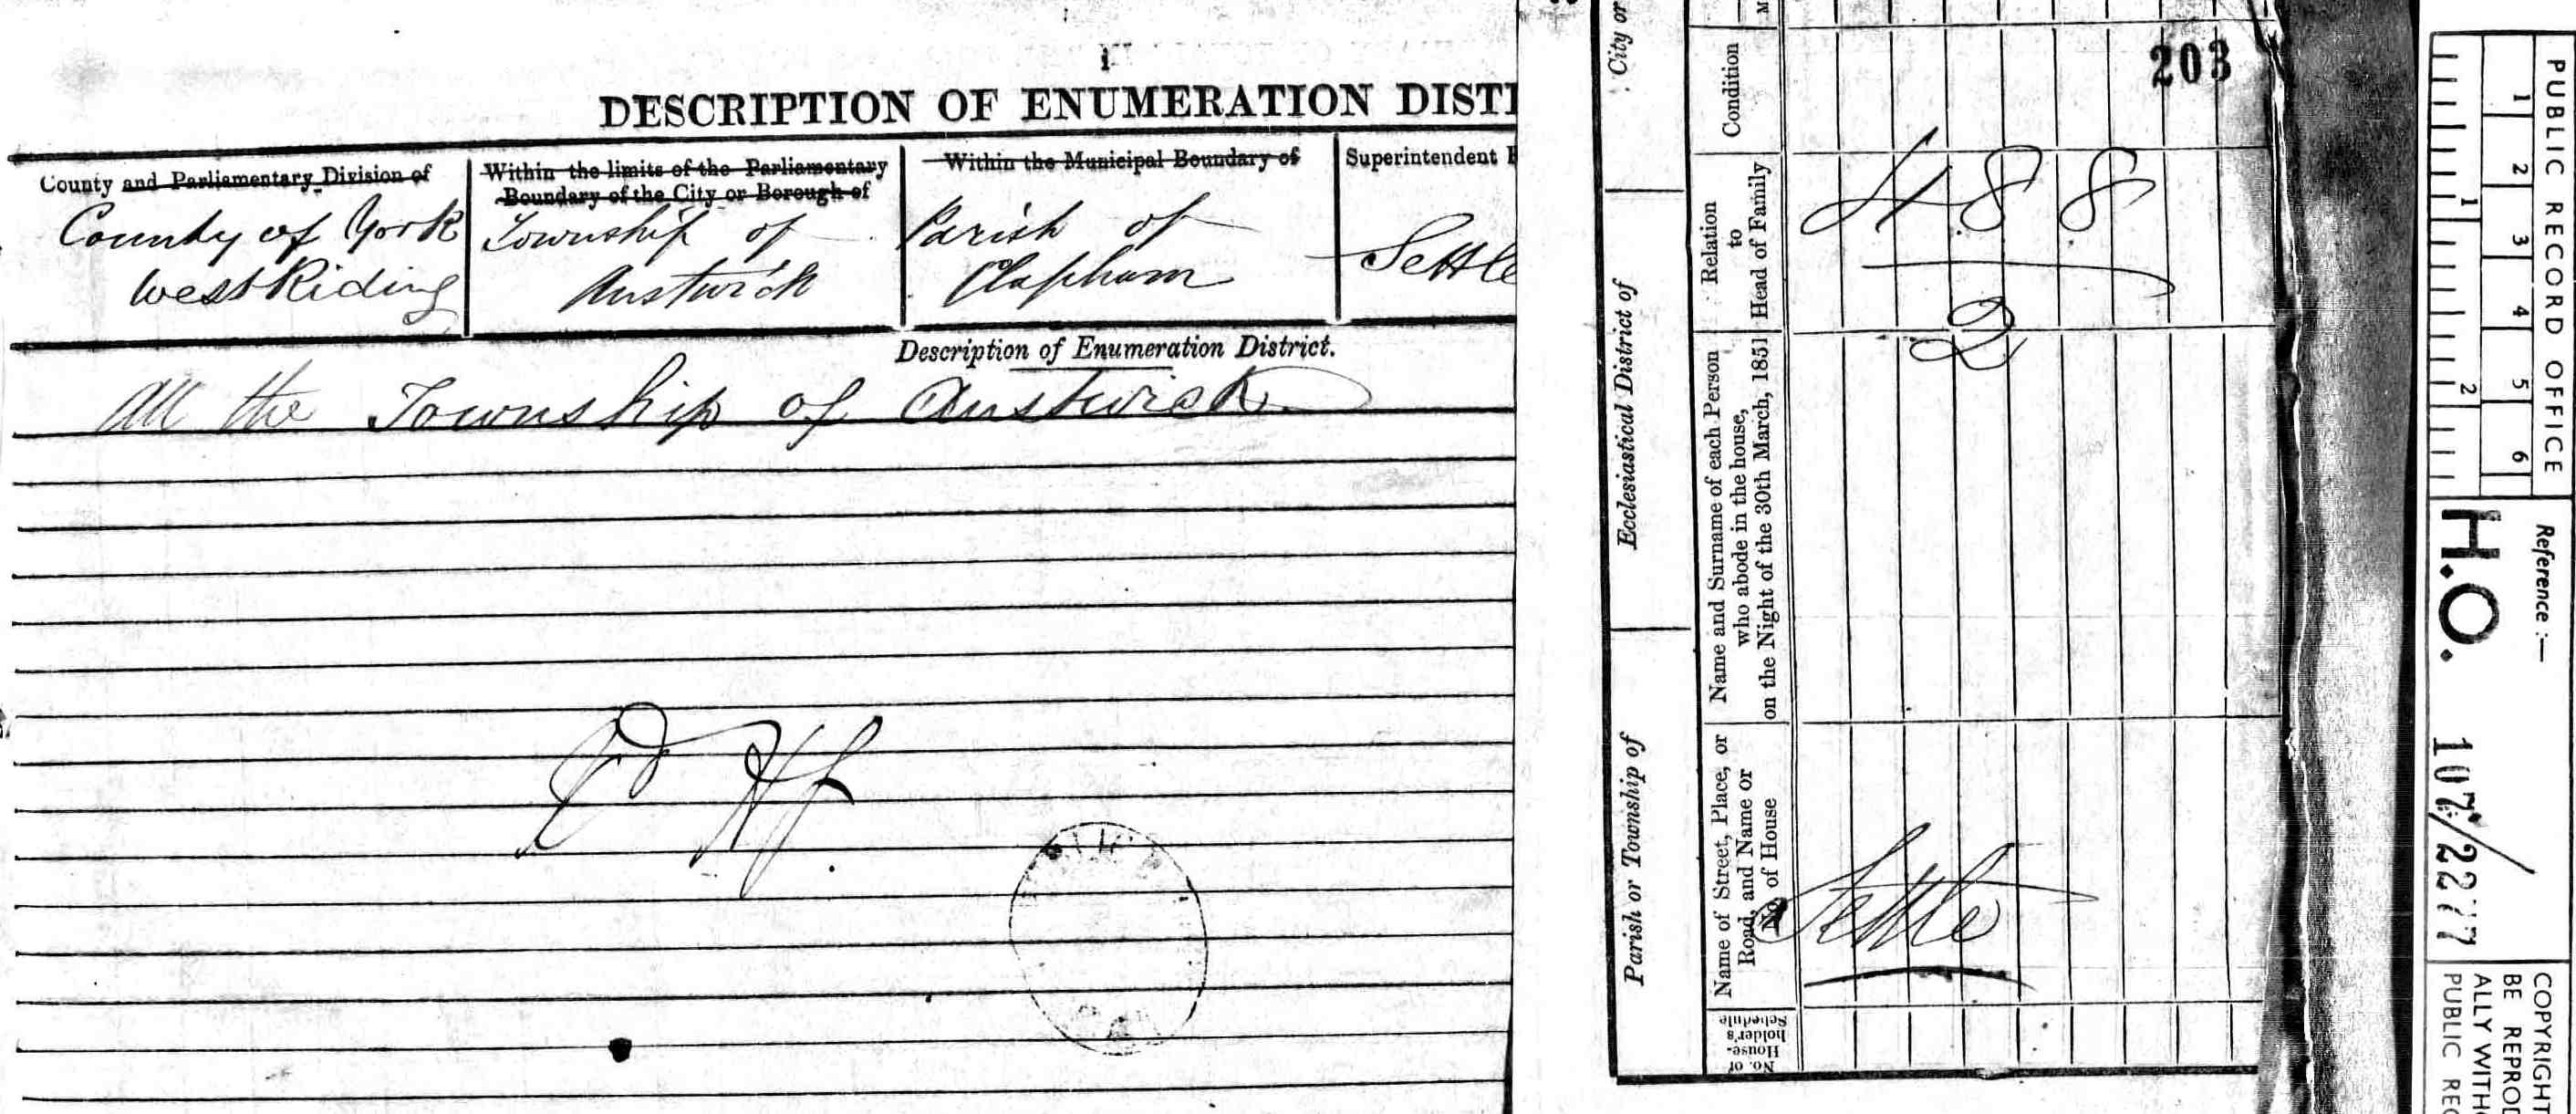 i
DESCRIPTION OF ENUMERATION DIST
County and Parliamentary Division of
County of York
West Riding
Within the limits of the Parliamentary
Boundary of the City or Borough of
Township of
Austwick
Within the Municipal Boundary of
Parish of
Clapham
Superintendent
Settle
Description of Enumeration District.
All the Township of Austwick
City or
Ecclesiastical District of
Parish or Township of
Condition
Relation
to
Head of Family
Name and Surname of each Person
who abode in the house,
on the Night of the 30th March, 1851
Name of Street, Place, or
Road, and Name or
No. of House
No. of
House-
holder's
Schedule
203
488
2
Settle
PUBLIC RECORD OFFICE
1 2 3 4 5 6
1 2
Reference :—
H.O. 107/2277
COPYRIGHT
BE REPRO
ALLY WITH
PUBLIC REC